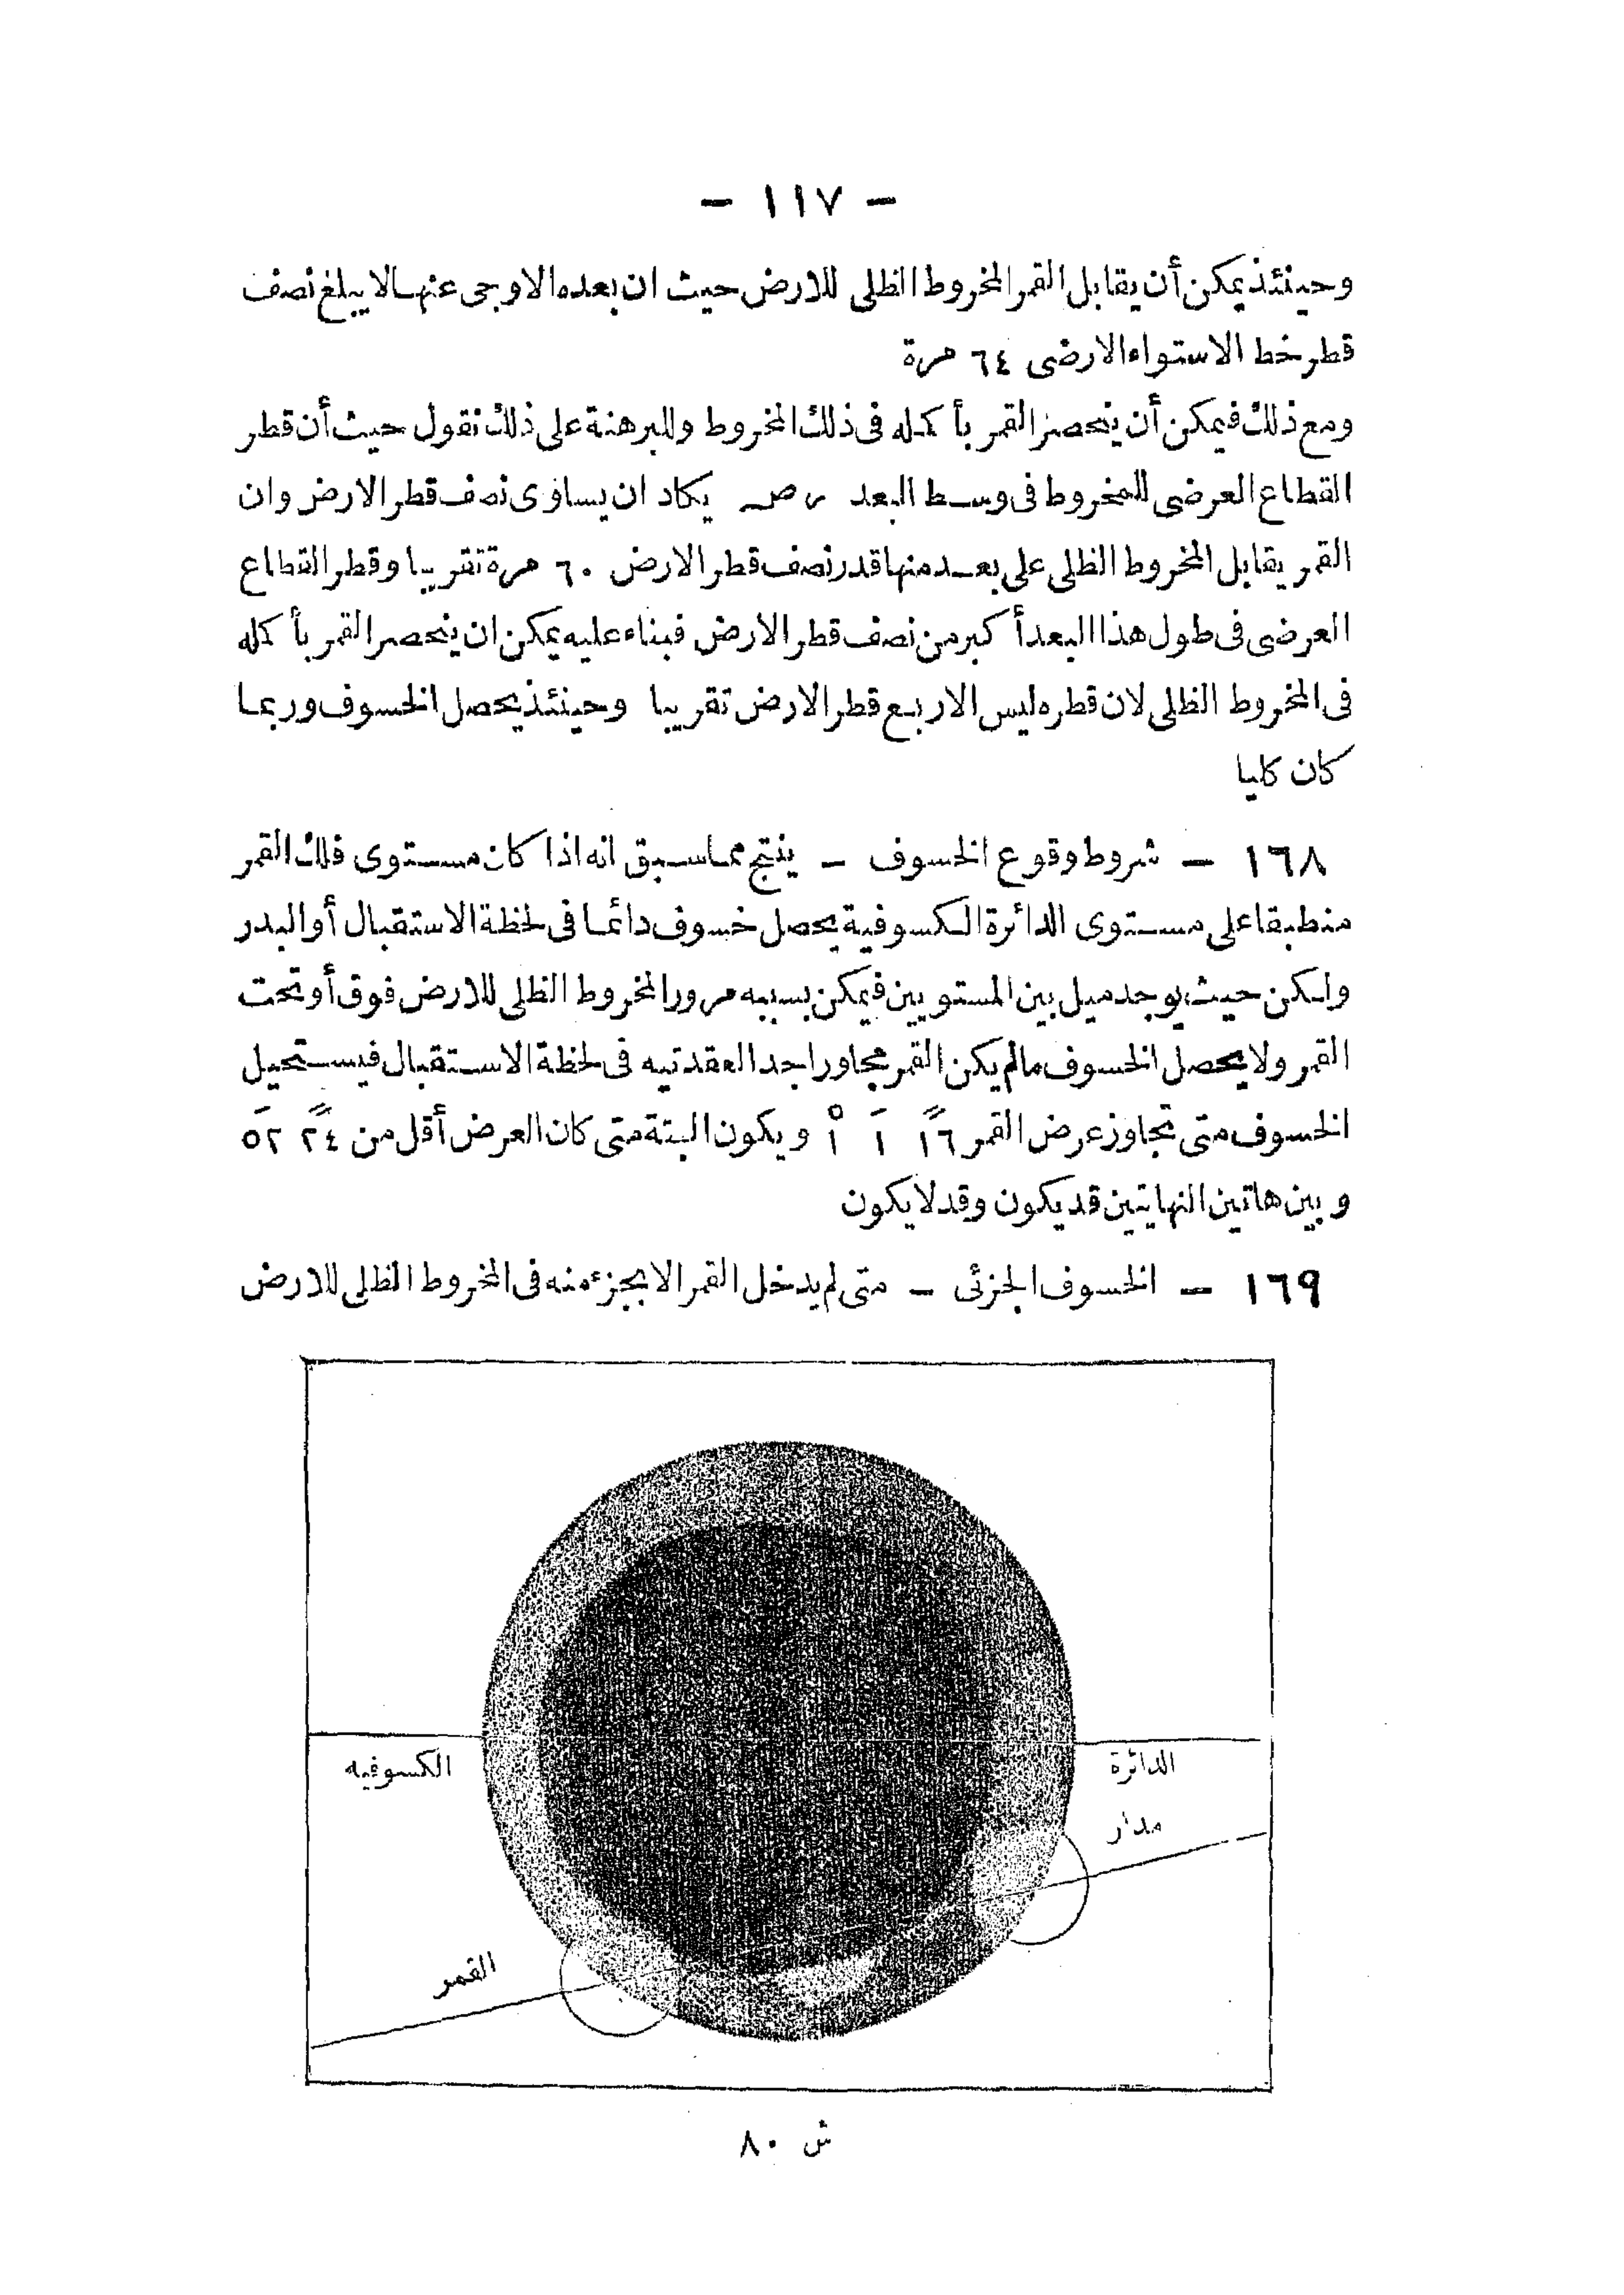 — ١١٧ —
وحينئذ يمكن أن يقابل القمر المخروط الظلى للارض حيث ان بعده الاوجى عنها لا يبلغ نصف
قطر خط الاستواء الارضى ٦٤ مرة
ومع ذلك فيمكن أن ينحصر القمر بأكمله فى ذلك المخروط وللبرهنة على ذلك نقول حيث أن قطر
القطاع العرضى للمخروط فى وسط البعد ر ص يكاد ان يساوى نصف قطر الارض وان
القمر يقابل المخروط الظلى على بعد منها قدر نصف قطر الارض ٦٠ مرة تقريبا وقطر القطاع
العرضى فى طول هذا البعد أكبر من نصف قطر الارض فبناء عليه يمكن ان ينحصر القمر بأكمله
فى المخروط الظلى لان قطره ليس الا ربع قطر الارض تقريبا وحينئذ يحصل الخسوف وربما
كان كليا
١٦٨ — شروط وقوع الخسوف — ينتج مما سبق انه اذا كان مستوى فلك القمر
منطبقا على مستوى الدائرة الكسوفية يحصل خسوف دائما فى لحظة الاستقبال أو البدر
ولكن حيث يوجد ميل بين المستويين فيمكن بسببه مرور المخروط الظلى للارض فوق أو تحت
القمر ولا يحصل الخسوف ما لم يكن القمر مجاورا حد العقدتيه فى لحظة الاستقبال فيستحيل
الخسوف متى تجاوز عرض القمر ١٦ً ١َ ١° ويكون البتة متى كان العرض أقل من ٢٤ً ٥٢َ
وبين هاتين النهايتين قد يكون وقد لا يكون
١٦٩ — الخسوف الجزئى — متى لم يدخل القمر الا بجزء منه فى المخروط الظلى للارض
الدائرة الكسوفيه
مدار القمر
ش ٨٠